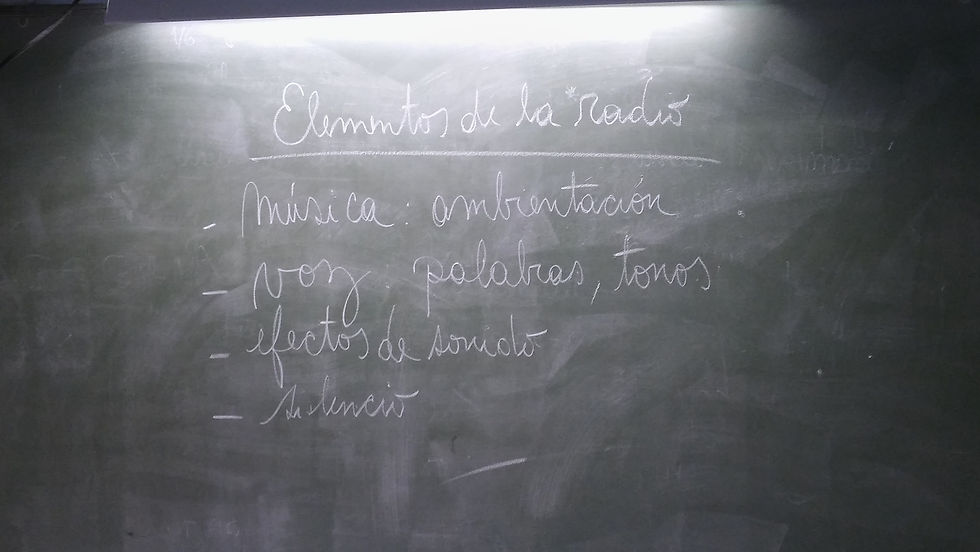 Elementos de la radio
- Música: ambientación
- voz: palabras, tonos
- efectos de sonido
- silencio